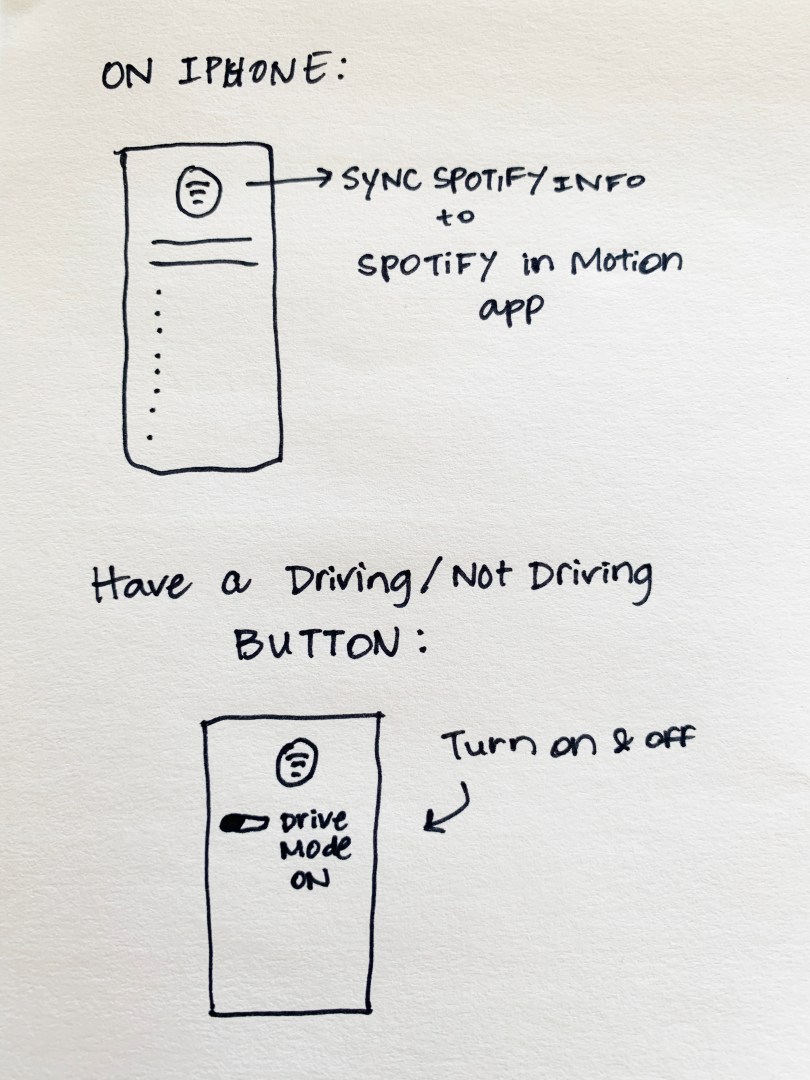 ON IPHONE:
SYNC SPOTIFY INFO
to
SPOTIFY in Motion
app
Have a Driving/Not Driving
BUTTON:
Turn on & off
Drive
Mode
ON